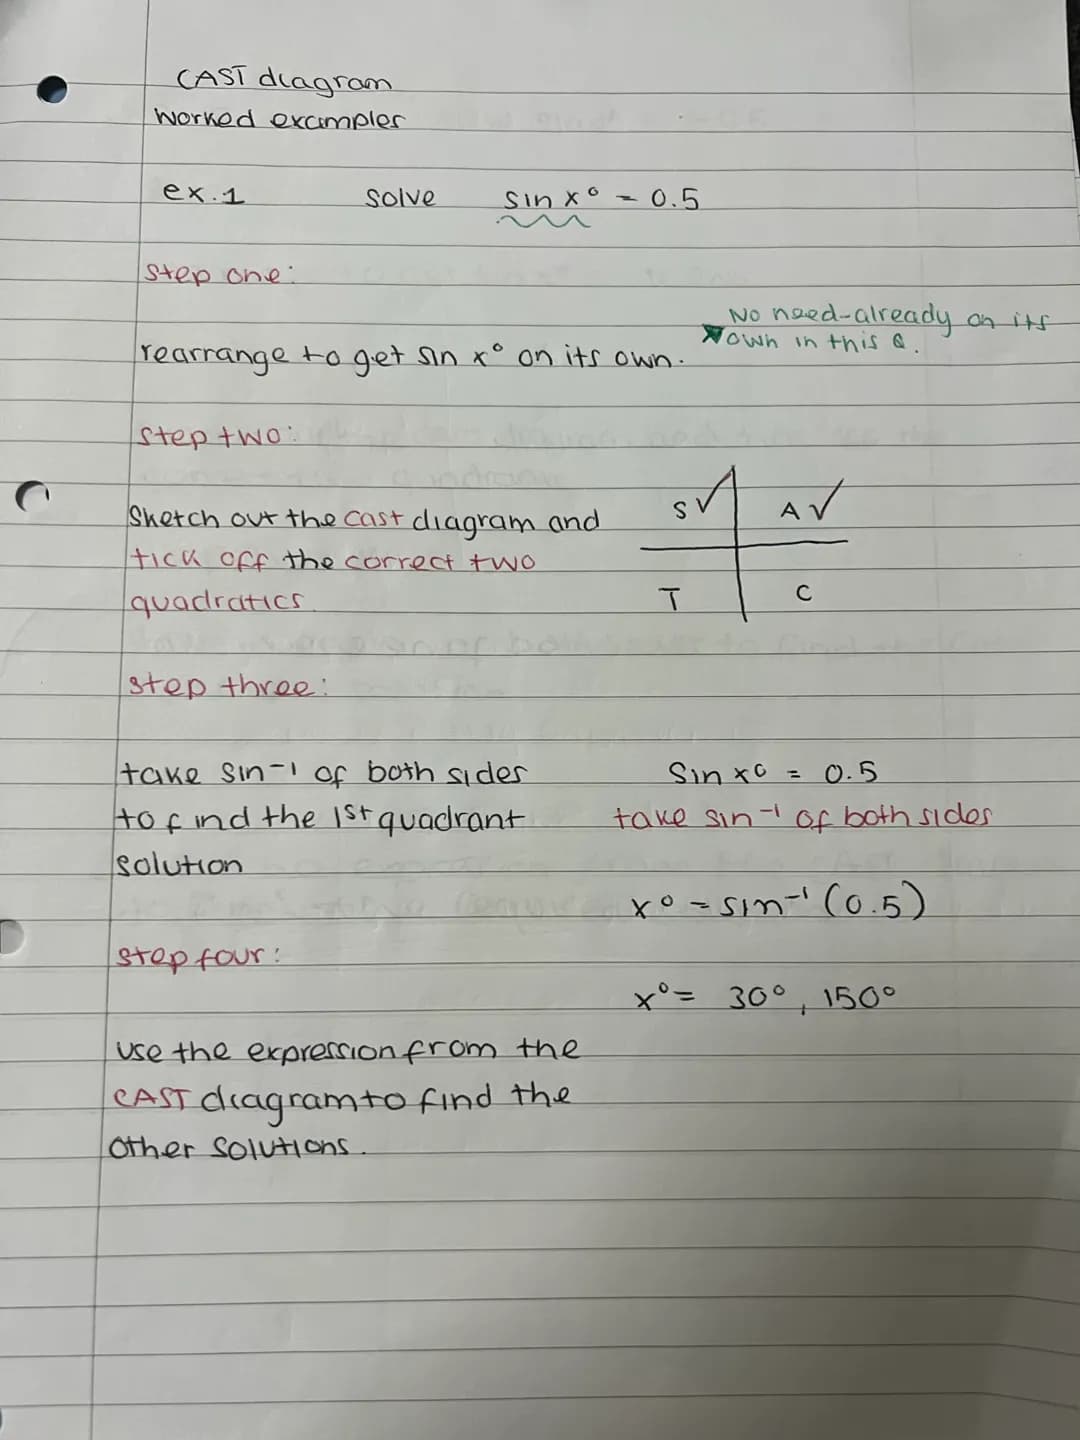 CAST diagram
Worked examples
ex.1 solve sin x° = 0.5
step one:
No need-already on its
own in this Q.
rearrange to get sin x° on its own.
step two:
S✓ A✓
Sketch out the cast diagram and
tick off the correct two
T C
quadratics.
step three:
take sin-1 of both sides
Sin x° = 0.5
to find the 1st quadrant
take sin-1 of both sides
solution
x° = sin-1 (0.5)
step four:
x° = 30°, 150°
use the expression from the
CAST diagram to find the
other solutions.